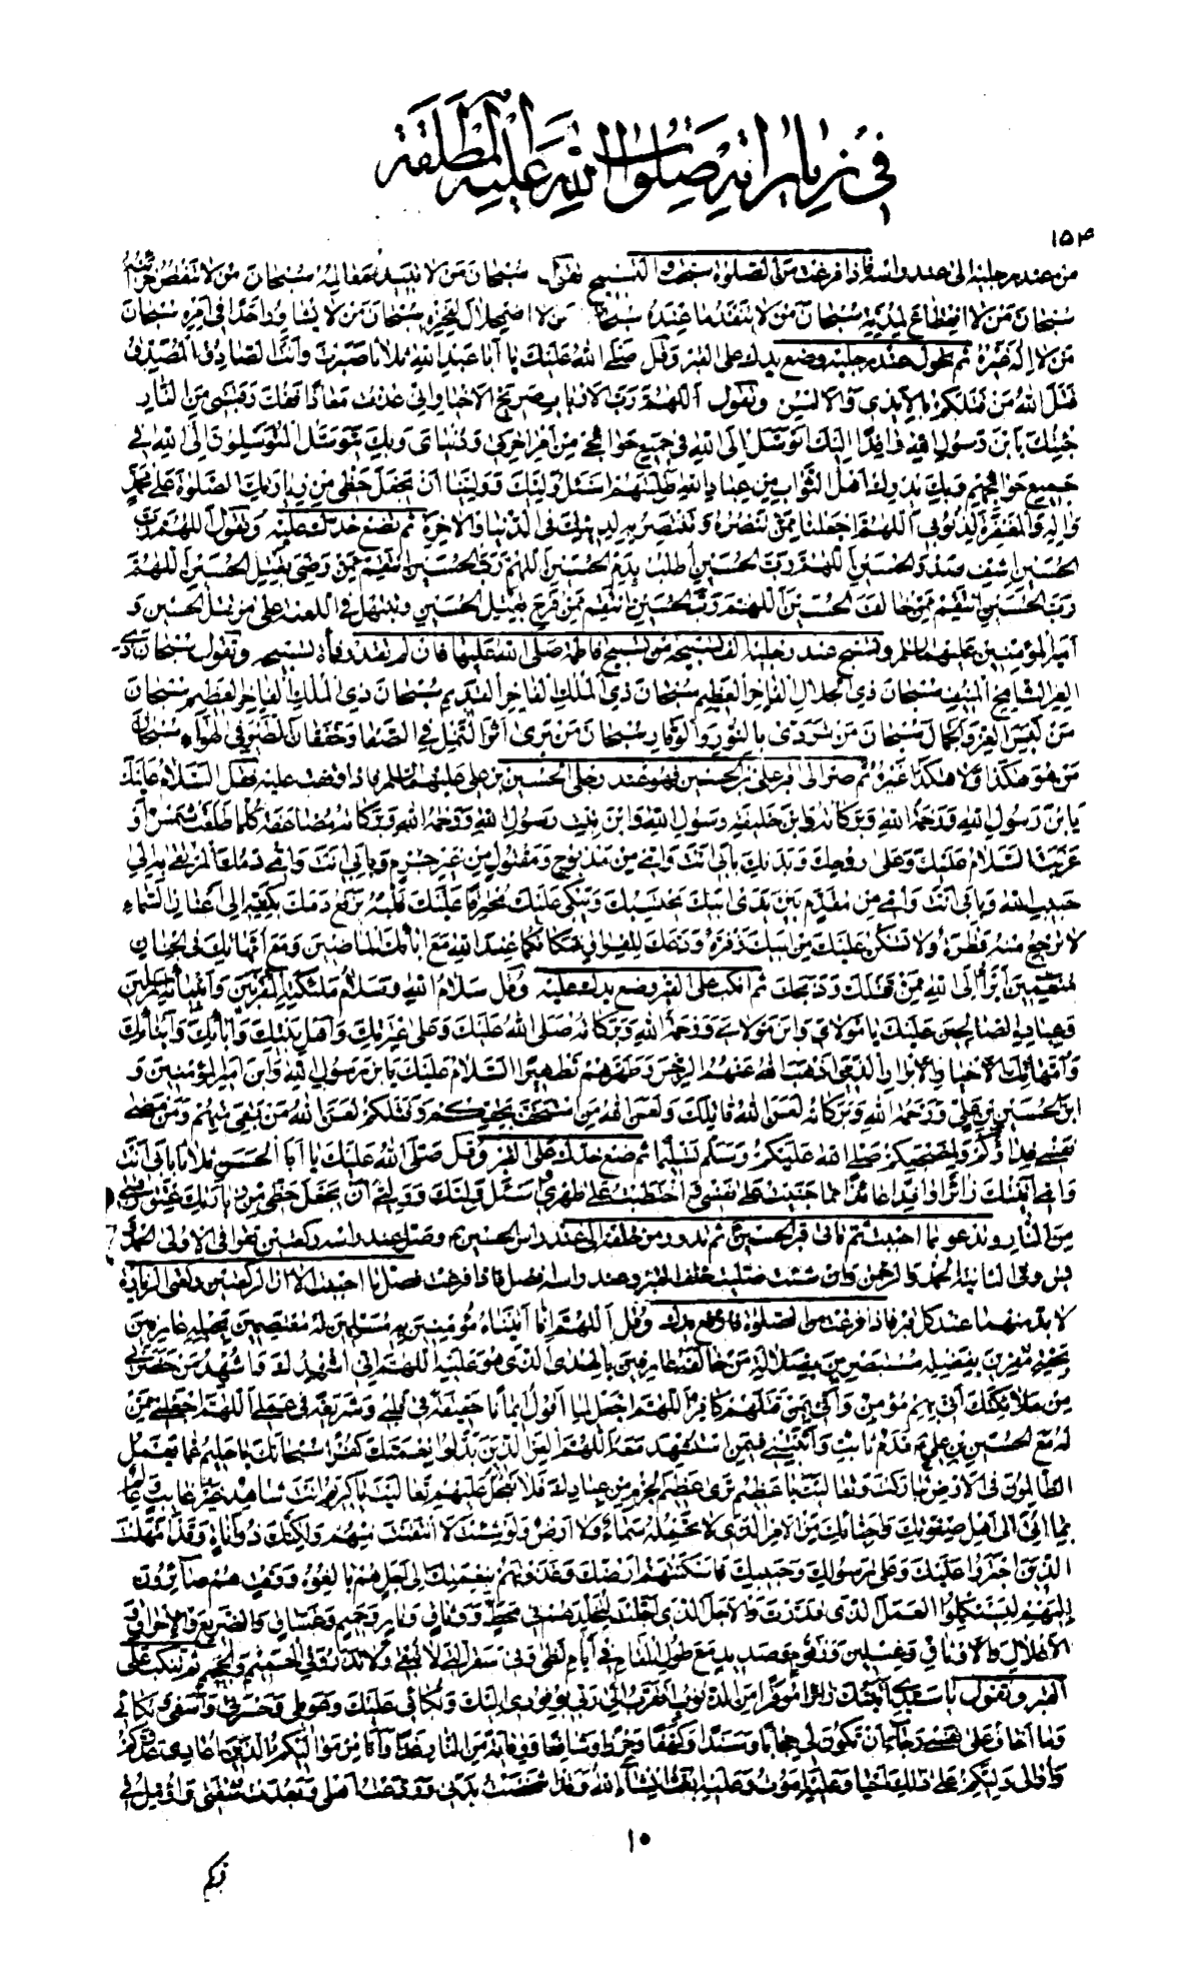 في زياراته صلوات الله عليه المطلقة
١٥٤
من عند رجليه الى عند راسه فاذا فرغت من الصلوة سبحت والتسبيح تقول سبحان من لا تبيد معالمه سبحان من لا تنقص خزائنه
سبحان من لا انقطاع لمدته سبحان من لا ينفد ما عنده سبحان من لا اضمحلال لفخره سبحان من لا يشاور احدا في امره سبحان
من لا اله غيره ثم تحول عند رجليه وضع يدك على القبر وقل صلى الله عليك يا ابا عبد الله ثلاثا صبرت وانت الصادق المصدق
قتل الله من قتلكم بالايدي والالسن وتقول اللهم رب الارباب صريخ الاخيار اني عذت معاذا ففك رقبتي من النار
جئتك يابن رسول الله وافدا اليك اتوسل الى الله في جميع حوائجي من امر اخرتي ودنياي وبك يتوسل المتوسلون الى الله في
جميع حوائجهم وبك يدرك اهل الثواب من عباد الله طلبتهم اسئل وليك وولينا ان يجعل حظي من زيارتك الصلوة على محمد
واله والمغفرة لذنوبي اللهم اجعلنا ممن تنصره وتنتصر به لدينك في الدنيا والاخرة ثم تضع خدك عليه وتقول اللهم رب
الحسين اشف صدر الحسين اللهم رب الحسين اطلب بدم الحسين اللهم رب الحسين انتقم ممن رضي بقتل الحسين اللهم
رب الحسين انتقم ممن خالف الحسين اللهم رب الحسين انتقم ممن فرح بقتل الحسين وتبتهل في اللعنة على من قتل الحسين و
امير المؤمنين عليهما السلم وتسبح عند رجليه الف تسبيحة من تسبيح فاطمة صلى الله عليها فان لم تقدر فمأة تسبيحة وتقول سبحان ذي
العز الشامخ المنيف سبحان ذي الجلال الفاخر العظيم سبحان ذي الملك الفاخر القديم سبحان ذي الملك الفاخر العظيم سبحان
من لبس العز والجمال سبحان من تردى بالنور والوقار سبحان من يرى اثر النمل في الصفا وخفقان الطير في الهواء سبحان
من هو هكذا ولا هكذا غيره ثم صر الى قبر علي بن الحسين فهو عند رجلي الحسين بن علي عليهما السلم فاذا وقفت عليه فقل السلام عليك
يابن رسول الله ورحمة الله وبركاته وابن خليفة رسول الله وابن بنت رسول الله ورحمة الله وبركاته مضاعفة كلما طلعت شمس او
غربت السلام عليك وعلى روحك وبدنك بابي انت وامي من مذبوح ومقتول من غير جرم وبابي انت وامي دمك المرتقى به الى
حبيب الله وبابي انت وامي من مقدم بين يدي ابيك يحتسبك ويبكي عليك محترقا عليك قلبه يرفع دمك بكفه الى اعنان السماء
لا يرجع منه قطرة ولا تسكن عليك من ابيك زفرة ودعك للفراق فمكانكما عند الله مع ابائك الماضين ومع امهاتك في الجنان
منعمين ابرأ الى الله ممن قتلك وذبحك ثم انكب على القبر وضع يدك عليه وقل سلام الله وسلام ملئكته المقربين وانبيائه المرسلين
وعباده الصالحين عليك يا مولاي وابن مولاي ورحمة الله وبركاته صلى الله عليك وعلى عترتك واهل بيتك وابائك وابنائك
وامهاتك الاخيار الابرار الذين اذهب الله عنهم الرجس وطهرهم تطهيرا السلام عليك يابن رسول الله وابن امير المؤمنين و
ابن الحسين بن علي ورحمة الله وبركاته لعن الله قاتلك ولعن الله من استخف بحقكم وقتلكم لعن الله من بقي منهم ومن مضى
نفسي فداؤكم ولمضجعكم صلى الله عليكم وسلم تسليما ثم ضع خدك على القبر وقل صلى الله عليك يا ابا الحسن ثلاثا بابي انت
وامي اتيتك زائرا وافدا عائذا مما جنيت على نفسي واحتطبت على ظهري اسئل وليك ووليي ان يجعل حظي من زيارتك عتق رقبتي
من النار وتدعو بما احببت ثم تاتي قبر الحسين ثم تدور من خلفه الى عند راس الحسين وصل عند راسه ركعتين تقرأ في الاولى الحمد
ويس وفي الثانية الحمد والرحمن وان شئت صليت خلف القبر وعند راسه افضل فاذا فرغت فصل ما احببت الا ان الركعتين ركعتي الزيارة
لا بد منهما عند كل قبر فاذا فرغت من الصلوة فارفع يديك وقل اللهم انا اتيناه مؤمنين به مسلمين له معتصمين بحبله عارفين
بحقه مقرين بفضله مستبصرين بضلالة من خالفه عارفين بالهدى الذي هو عليه اللهم اني اشهدك واشهد من حضر
من ملائكتك اني بهم مؤمن واني بمن قتلهم كافر اللهم اجعل لما اقول بلساني حقيقة في قلبي وشريعة في عملي اللهم اجعلني ممن
له مع الحسين بن علي قدم ثابت واثبتني فيمن استشهد معه اللهم العن الذين بدلوا نعمتك كفرا سبحانك يا حليم عما يعمل
الظالمون في الارض تباركت وتعاليت يا عظيم ترى عظيم الجرم من عبادك فلا تعجل عليهم تعاليت يا كريم انت شاهد غير غائب عالم
بما اوتي الى اهل صفوتك واحبائك من الامر الذي لا تحمله سماء ولا ارض ولو شئت لانتقمت منهم ولكنك ذو اناة وقد امهلت
الذين اجترؤا عليك وعلى رسولك وحبيبك فاسكنتهم ارضك وغذوتهم بنعمتك الى اجل هم بالغوه ووقت هم صائرون
اليه ليستكملوا العمل الذي قدرت والاجل الذي اجلت لتخلدهم في محط ووثاق ونار وحميم وغساق والضريع والاحراق
الاغلال والاوثاق وغسلين وزقوم وصديد مع طول المقام في ايام لظى وفي سقر التي لا تبقي ولا تذر في الحميم والجحيم ثم تنكب على
القبر وتقول يا سيدي اتيتك زائرا موقرا من الذنوب اتقرب الى ربي بوفودي اليك وبكائي عليك وعويلي وحسرتي واسفي وبكائي
وما اخاف على نفسي رجاء ان تكون لي حجابا وسندا وكهفا وحرزا وشافعا ووقاية من النار غدا وانا من مواليكم الذين اعادي عدوكم
واوالي وليكم على ذلك احيا وعليه اموت وعليه ابعث انشاء الله وقد اشخصت بدني وودعت اهلي وبعدت شقتي واؤمل في
١٠